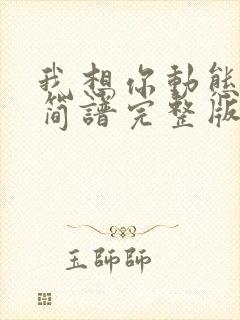 我想你動態
簡譜完整版
玉師師